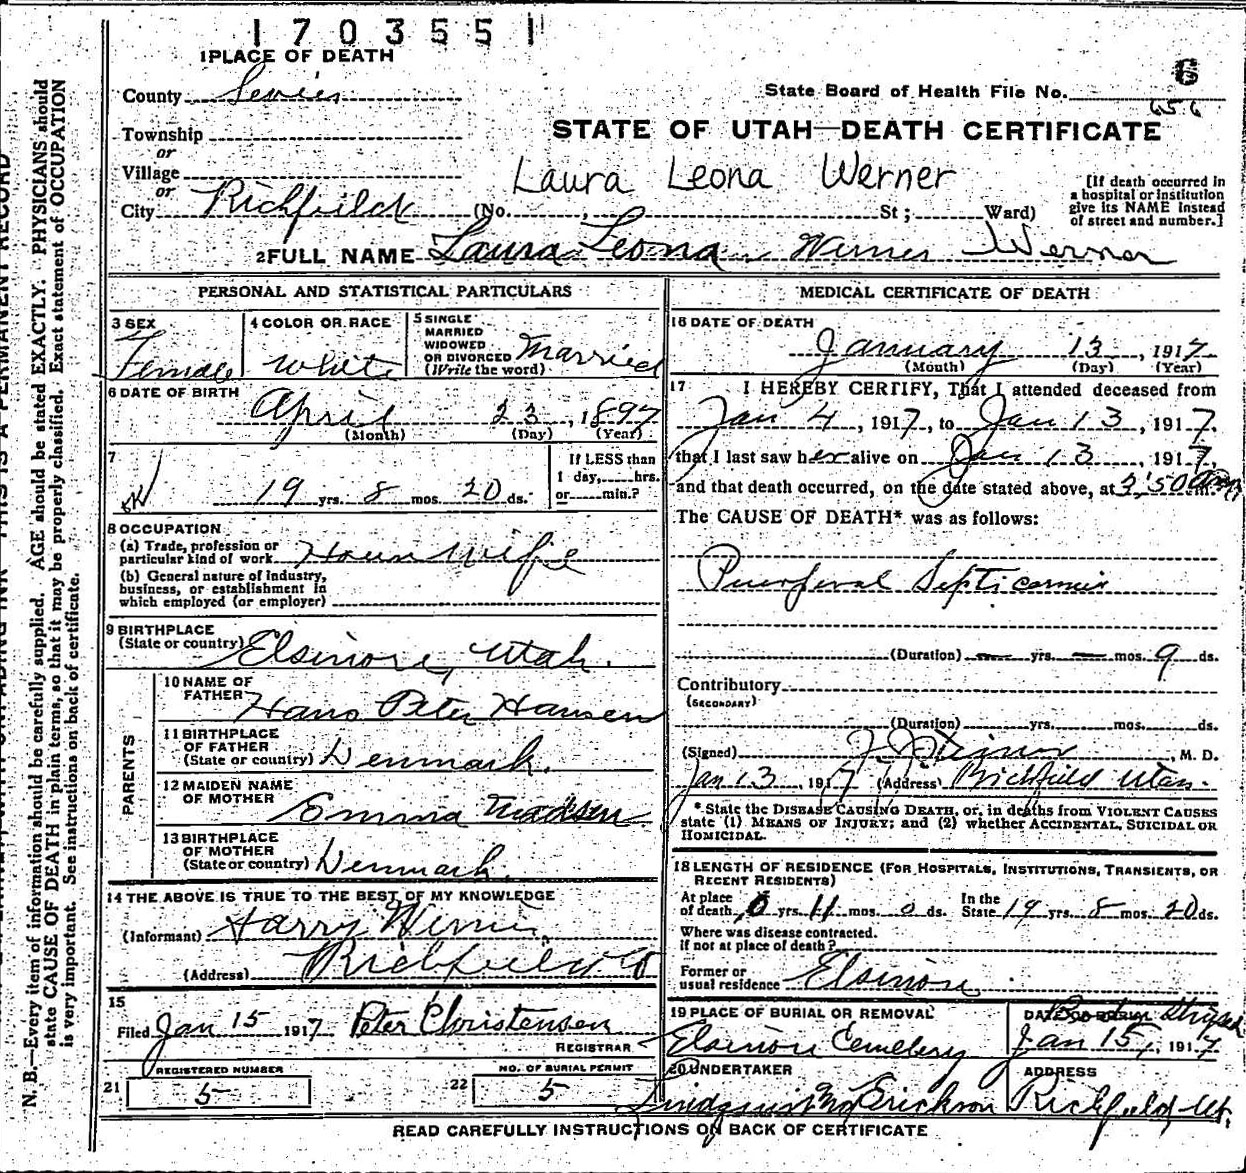 1703551
1 PLACE OF DEATH
6
County Sevier
State Board of Health File No.
656
Township
STATE OF UTAH—DEATH CERTIFICATE
or
Village
Laura Leona Werner
or
City Richfield (No. , St; Ward)
[If death occurred in
a hospital or institution
give its NAME instead
of street and number.]
2 FULL NAME Laura Leona Werner
PERSONAL AND STATISTICAL PARTICULARS
3 SEX
Female
4 COLOR OR RACE
White
5 SINGLE
MARRIED
WIDOWED
OR DIVORCED
(Write the word)
Married
6 DATE OF BIRTH
April 23, 1897
(Month) (Day) (Year)
7
19 yrs. 8 mos. 20 ds.
If LESS than
1 day, hrs.
or min.?
8 OCCUPATION
(a) Trade, profession or
particular kind of work House Wife
(b) General nature of industry,
business, or establishment in
which employed (or employer)
9 BIRTHPLACE
(State or country) Elsinore, Utah.
PARENTS
10 NAME OF
FATHER Hans Peter Hansen
11 BIRTHPLACE
OF FATHER
(State or country) Denmark.
12 MAIDEN NAME
OF MOTHER Emma Madsen
13 BIRTHPLACE
OF MOTHER
(State or country) Denmark.
14 THE ABOVE IS TRUE TO THE BEST OF MY KNOWLEDGE
(Informant) Harry Werner
(Address) Richfield
15
Filed Jan 15 1917 Peter Christensen
REGISTRAR
REGISTERED NUMBER
21 5
NO. OF BURIAL PERMIT
22 5
MEDICAL CERTIFICATE OF DEATH
16 DATE OF DEATH
January 13, 1917
(Month) (Day) (Year)
17 I HEREBY CERTIFY, That I attended deceased from
Jan 4, 1917, to Jan 13, 1917,
that I last saw her alive on Jan 13, 1917,
and that death occurred, on the date stated above, at 3:50 am.
The CAUSE OF DEATH* was as follows:
Puerperal Septicemia
(Duration) — yrs. — mos. 9 ds.
Contributory
(SECONDARY)
(Duration) yrs. mos. ds.
(Signed) , M. D.
Jan 13, 1917 (Address) Richfield Utah.
* State the DISEASE CAUSING DEATH, or, in deaths from VIOLENT CAUSES
state (1) MEANS OF INJURY; and (2) whether ACCIDENTAL, SUICIDAL OR
HOMICIDAL.
18 LENGTH OF RESIDENCE (FOR HOSPITALS, INSTITUTIONS, TRANSIENTS, OR
RECENT RESIDENTS)
At place
of death, 0 yrs. 11 mos. 0 ds.
In the
State 19 yrs. 8 mos. 20 ds.
Where was disease contracted.
if not at place of death?
Former or
usual residence Elsinore
19 PLACE OF BURIAL OR REMOVAL
Elsinore Cemetery
DATE OF BURIAL
Jan 15, 1917
20 UNDERTAKER
Erickson
ADDRESS
Richfield Ut.
READ CAREFULLY INSTRUCTIONS ON BACK OF CERTIFICATE
N. B.—Every item of information should be carefully supplied. AGE should be stated EXACTLY. PHYSICIANS should
state CAUSE OF DEATH in plain terms, so that it may be properly classified. Exact statement of OCCUPATION
is very important. See instructions on back of certificate.